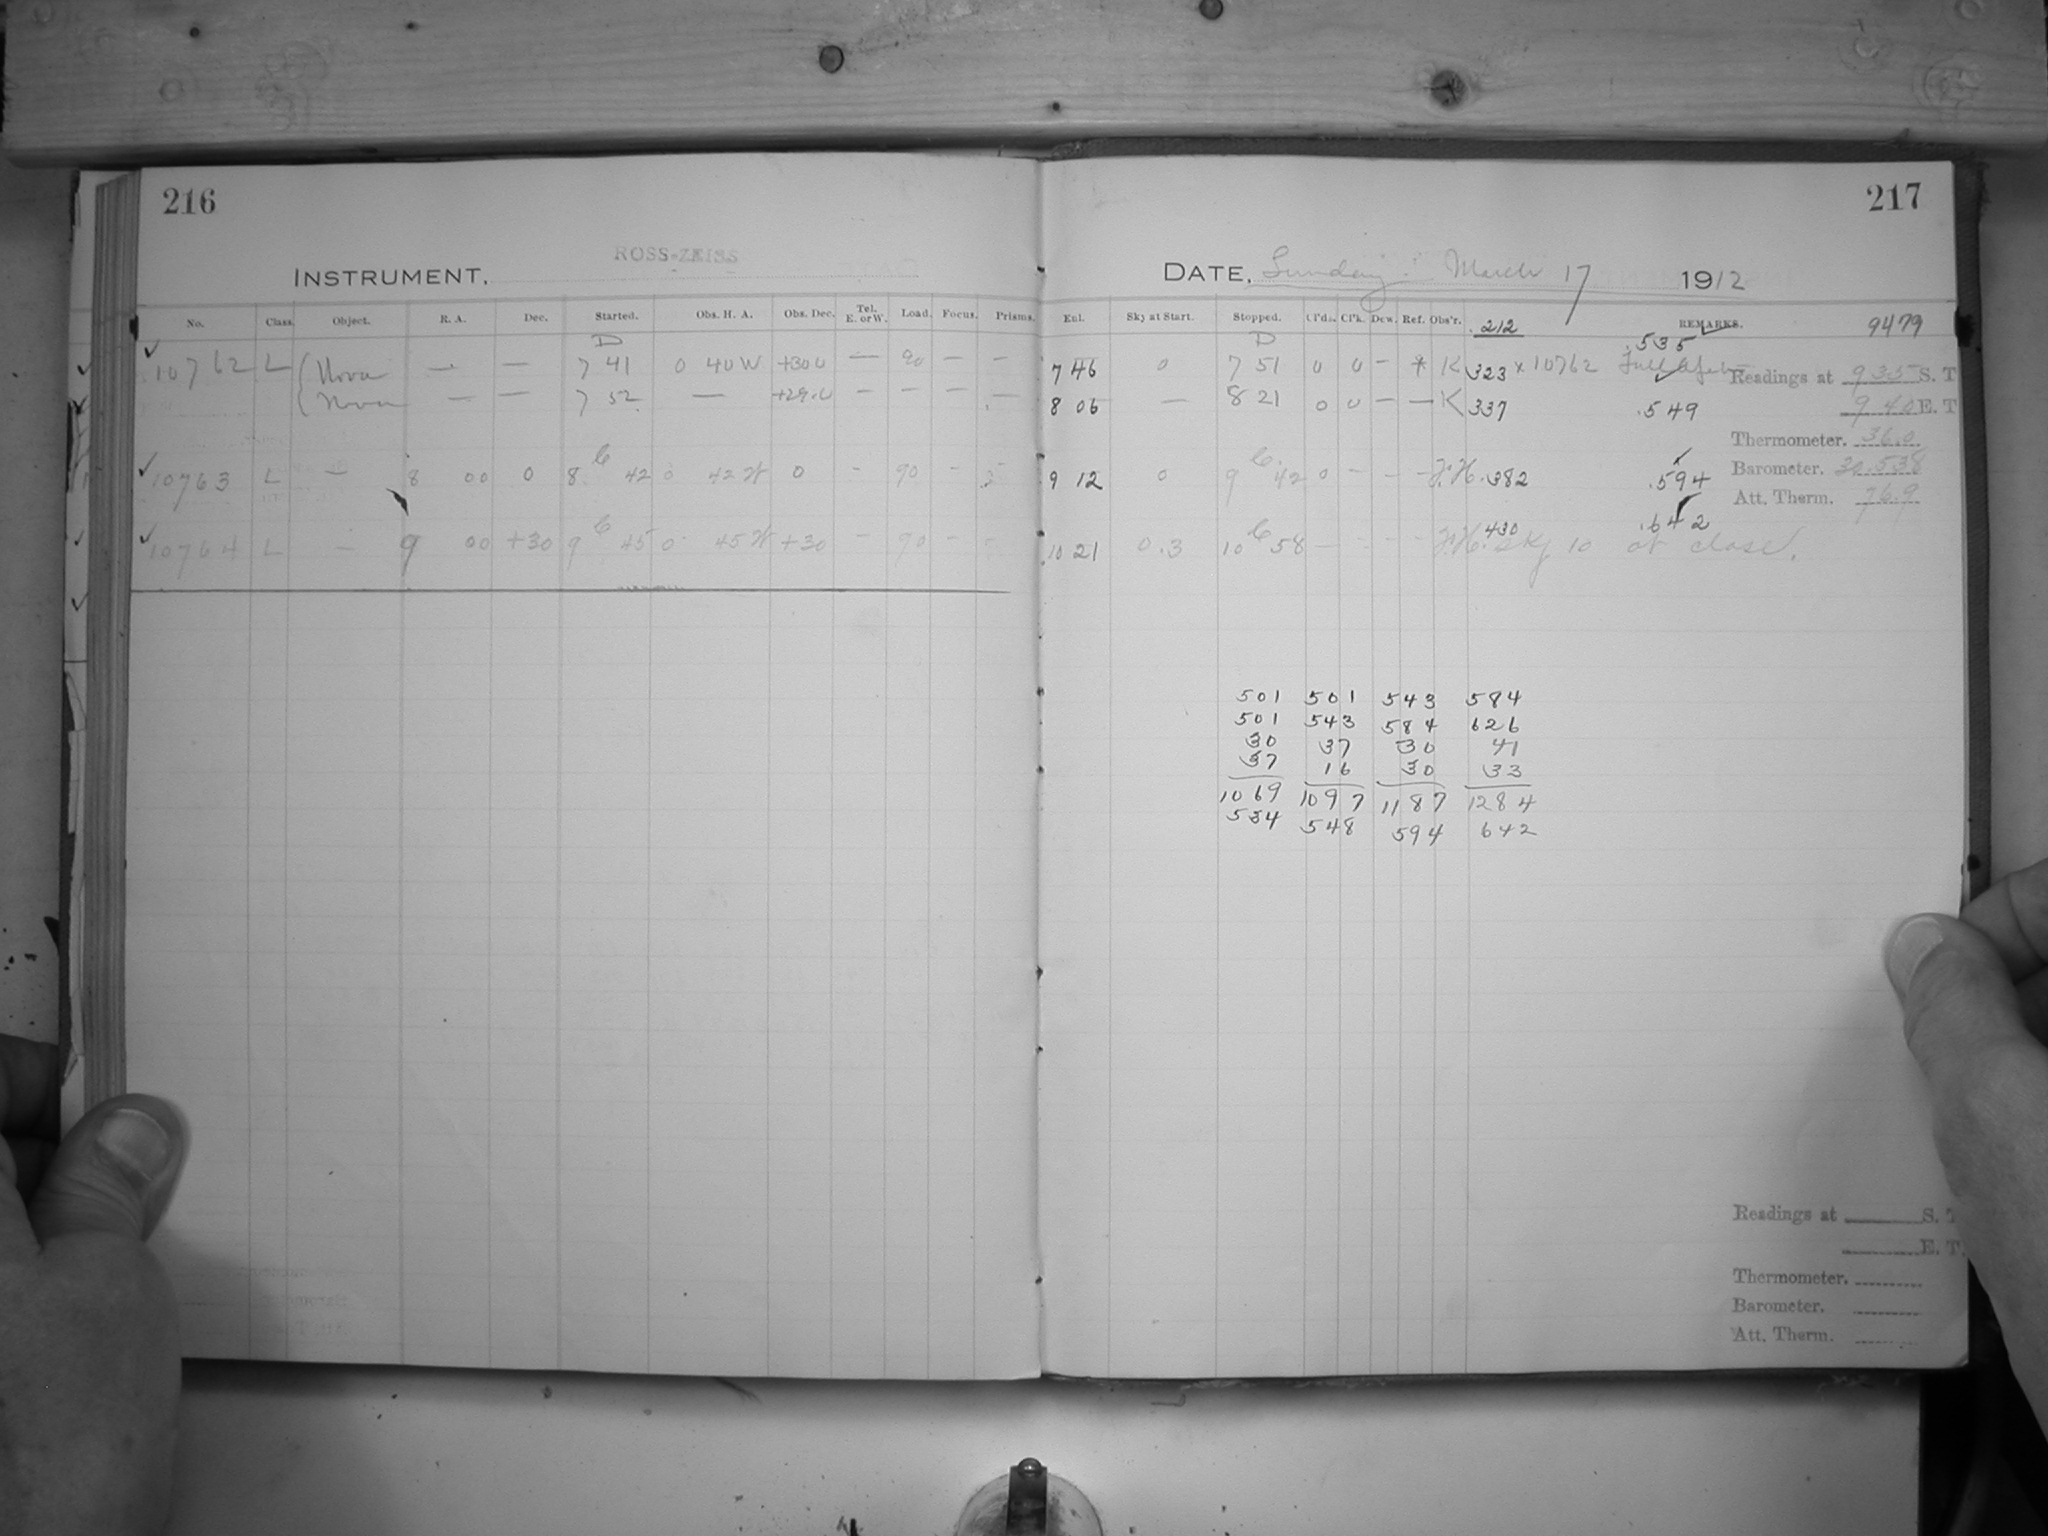 216
ROSS-ZEISS
INSTRUMENT,
No. Class. Object. R. A. Dec. Started. Obs. H. A. Obs. Dec. Tel. E. or W. Load. Focus. Prisms.
D
10762 L Nova — — 7 41 0 40 W +30 0 — 90 — —
Nova — — 7 52 — +29.0 — — — —
10763 L — 8 00 0 8 c 42 0 42 W 0 - 90 -
10764 L — 9 00 +30 9 c 45 0 45 W +30 - 90 -
217
DATE, Sunday March 17 1912
Enl. Sky at Start. Stopped. Cl'ds. Cl'k. Dew. Ref. Obs'r. .212 REMARKS. 9479
D .535
7 46 0 7 51 0 0 - * K 323 x 10762
8 06 — 8 21 0 0 — — K 337 .549
9 12 0 9 c 42 0 - - - J.H. .382 .594
10 21 0.3 10 c 58 — - - - J.H. .430 .642
Sky 10 at close.
Readings at 9 35 S. T
9 40 E. T
Thermometer. 36.0
Barometer. 30.538
Att. Therm. 76.9
501 501 543 584
501 543 584 626
30 37 30 41
37 16 30 33
1069 1097 1187 1284
534 548 594 642
Readings at S. T
E. T.
Thermometer.
Barometer.
Att. Therm.